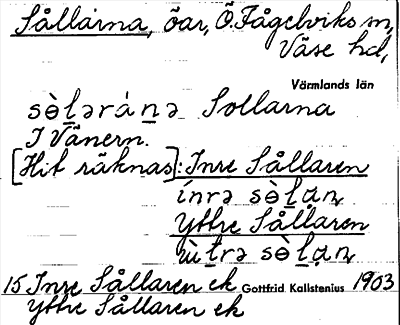 Sållarna, öar, Ö. Fågelviks sn,
Väse hd,
Värmlands län
sɵ̀l̲ərán̲ə Sollarna
I Vänern.
[Hit räknas]: Inre Sållaren
ínrə sɵ̀l̲ạn̲
Yttre Sållaren
ẁt̲rə sɵ̀l̲ạn̲
15 Inre Sållaren ek Gottfrid Kallstenius 1903
Yttre Sållaren ek